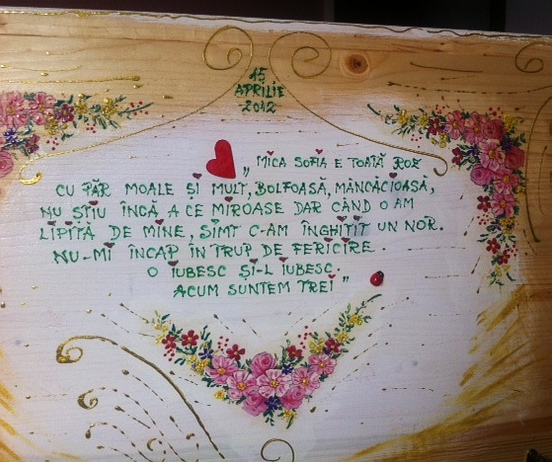 15
APRILIE
2012
„ MICA SOFIA E TOATĂ ROZ
CU PĂR MOALE ȘI MULT, BOLFOASĂ, MÂNCĂCIOASĂ,
NU ȘTIU ÎNCĂ A CE MIROASE DAR CÂND O AM
LIPITĂ DE MINE, SIMT C-AM ÎNGHIȚIT UN NOR.
NU-MI ÎNCAP ÎN TRUP DE FERICIRE.
O IUBESC ȘI-L IUBESC.
ACUM SUNTEM TREI "